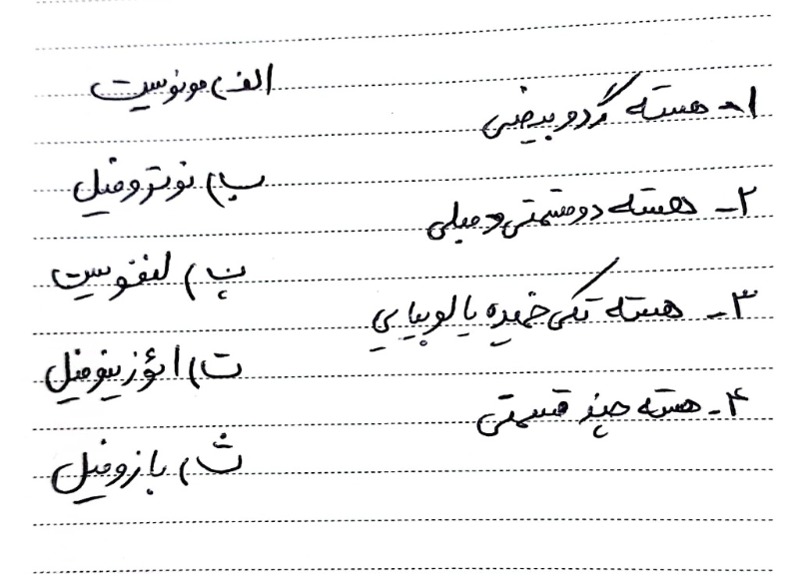 الف) مونوسیت
۱- هسته گرد و بیضی
ب) نوتروفیل
۲- هسته دو قسمتی دمبلی
پ) لنفوسیت
۳- هسته تکی خمیده یا لوبیایی
ت) ائوزینوفیل
۴- هسته چند قسمتی
ث) بازوفیل